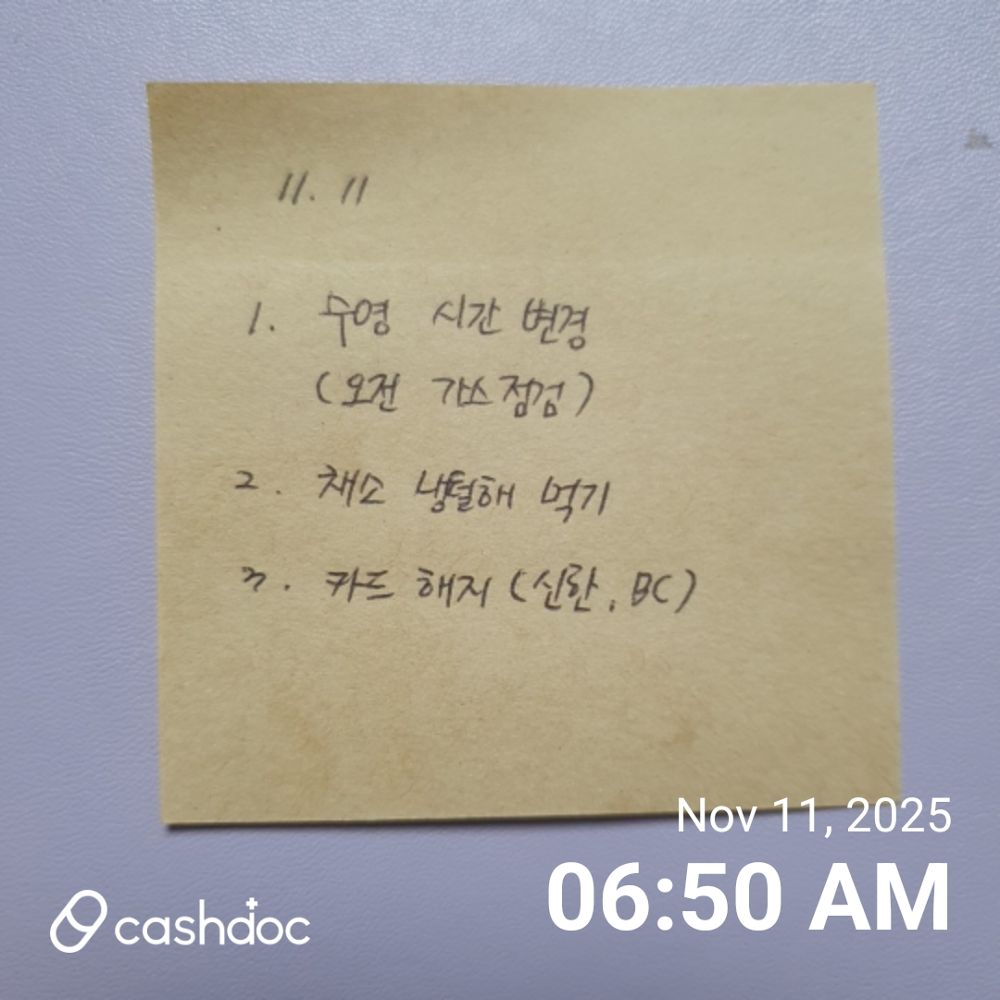 11. 11
1. 수영 시간 변경
(오전 가스 점검)
2. 채소 냉털해 먹기
3. 카드 해지 (신한, BC)
Nov 11, 2025
06:50 AM
cashdoc